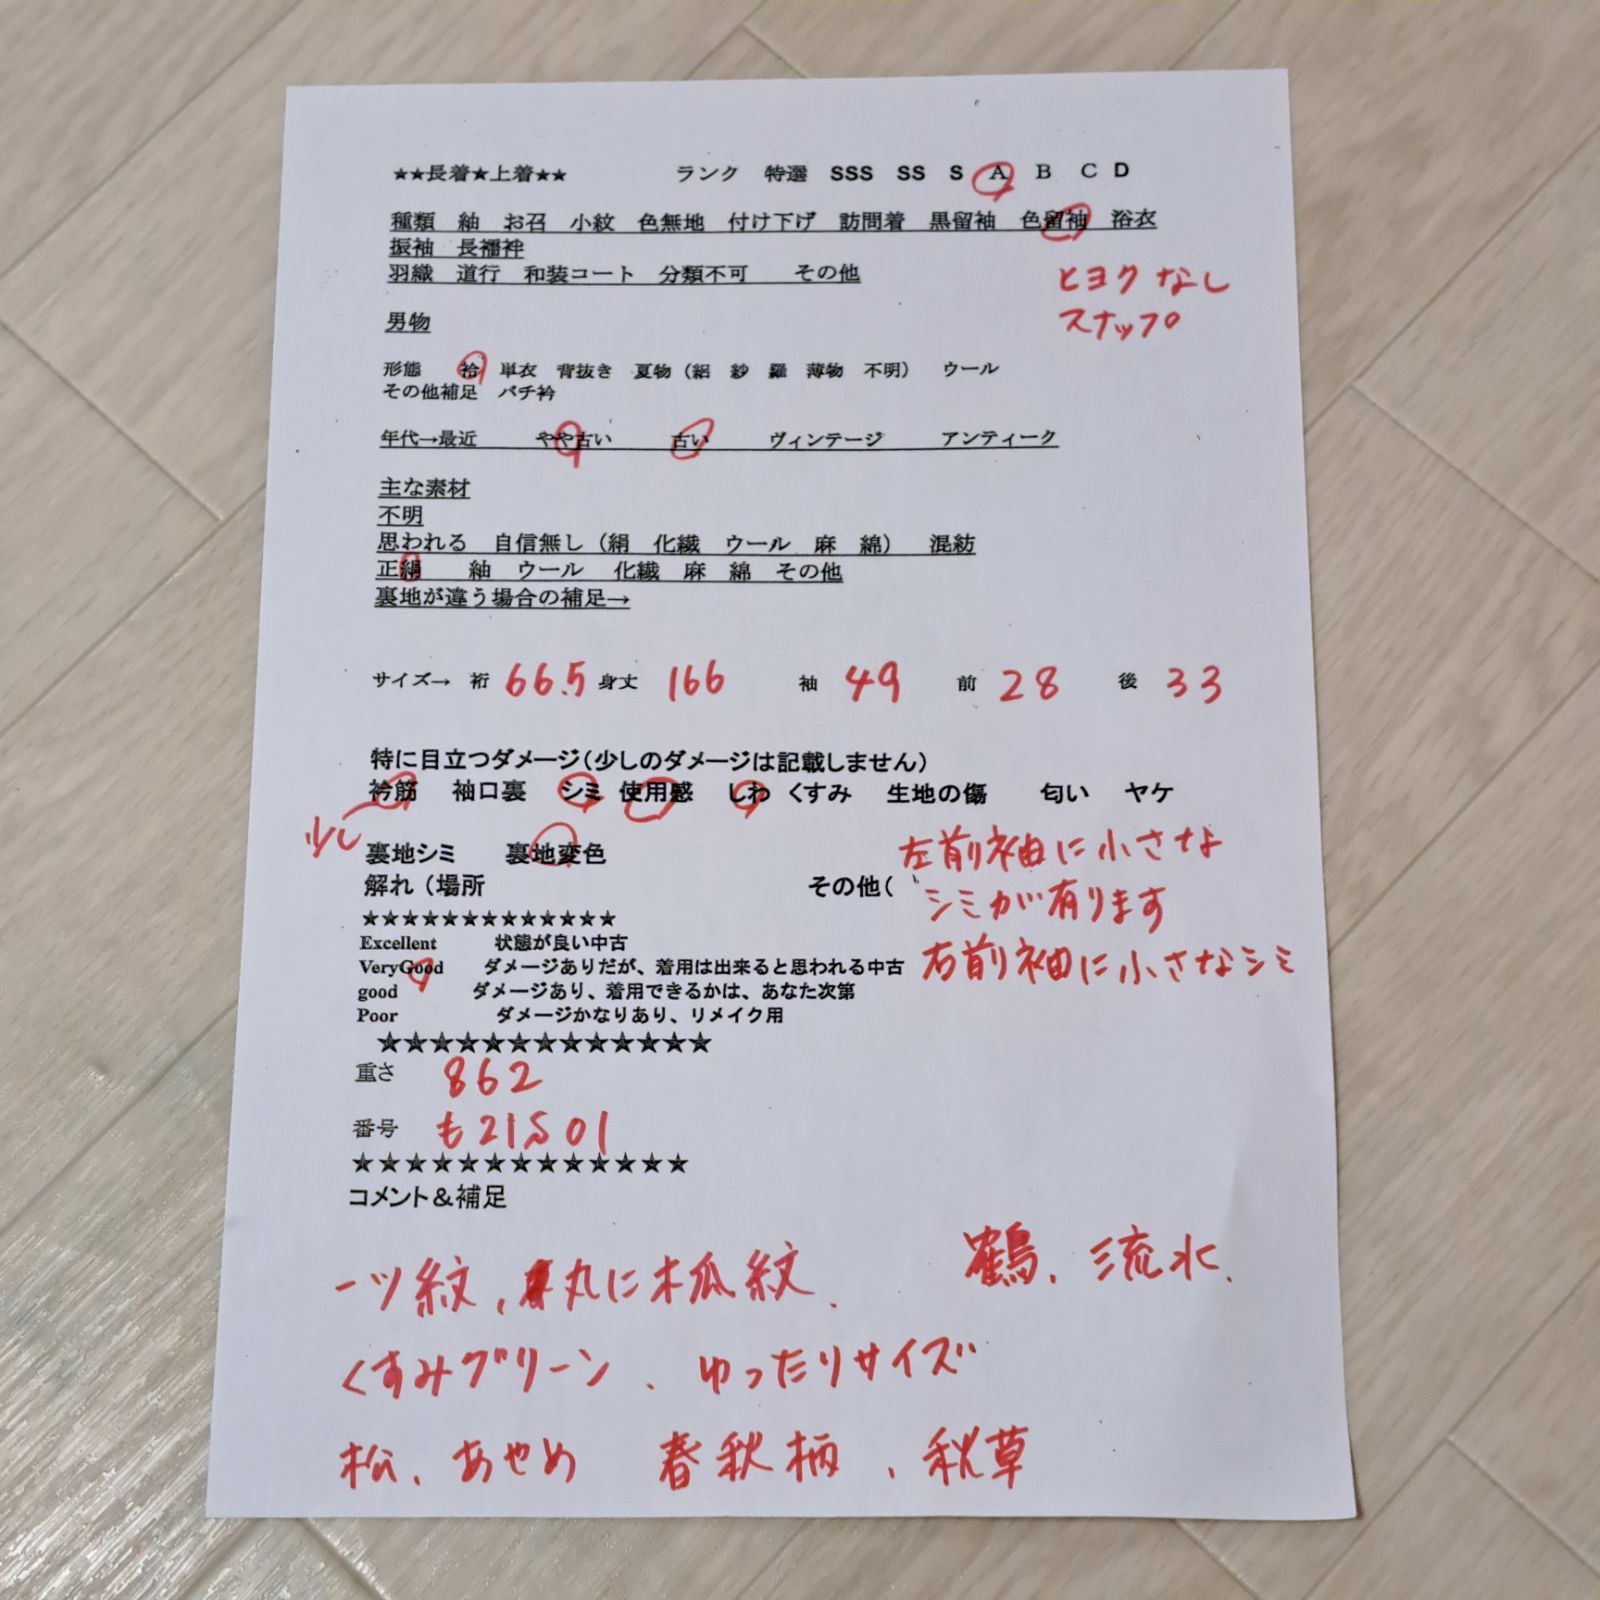 ★★長着★上着★★　ランク　特選　SSS　SS　S　A　B　C　D
種類　紬　お召　小紋　色無地　付け下げ　訪問着　黒留袖　色留袖　浴衣
振袖　長襦袢
羽織　道行　和装コート　分類不可　その他
ヒヨクなし
スナップ
男物
形態　袷　単衣　背抜き　夏物（絽　紗　羅　薄物　不明）　ウール
その他補足　バチ衿
年代→最近　やや古い　古い　ヴィンテージ　アンティーク
主な素材
不明
思われる　自信無し（絹　化繊　ウール　麻　綿）　混紡
正絹　紬　ウール　化繊　麻　綿　その他
裏地が違う場合の補足→
サイズ→　裄　66.5　身丈　166　袖　49　前　28　後　33
特に目立つダメージ（少しのダメージは記載しません）
衿筋　袖口裏　シミ　使用感　しわ　くすみ　生地の傷　匂い　ヤケ
少し
裏地シミ　裏地変色
解れ（場所　その他（
左前袖に小さな
シミが有ります
右前袖に小さなシミ
★★★★★★★★★★★★★
Excellent　状態が良い中古
VeryGood　ダメージありだが、着用は出来ると思われる中古
good　ダメージあり、着用できるかは、あなた次第
Poor　ダメージかなりあり、リメイク用
★★★★★★★★★★★★★
重さ　862
番号　も21S01
★★★★★★★★★★★★★
コメント＆補足
一ツ紋、丸に木瓜紋、　鶴、流水、
くすみグリーン、ゆったりサイズ
松、あやめ　春秋柄、秋草